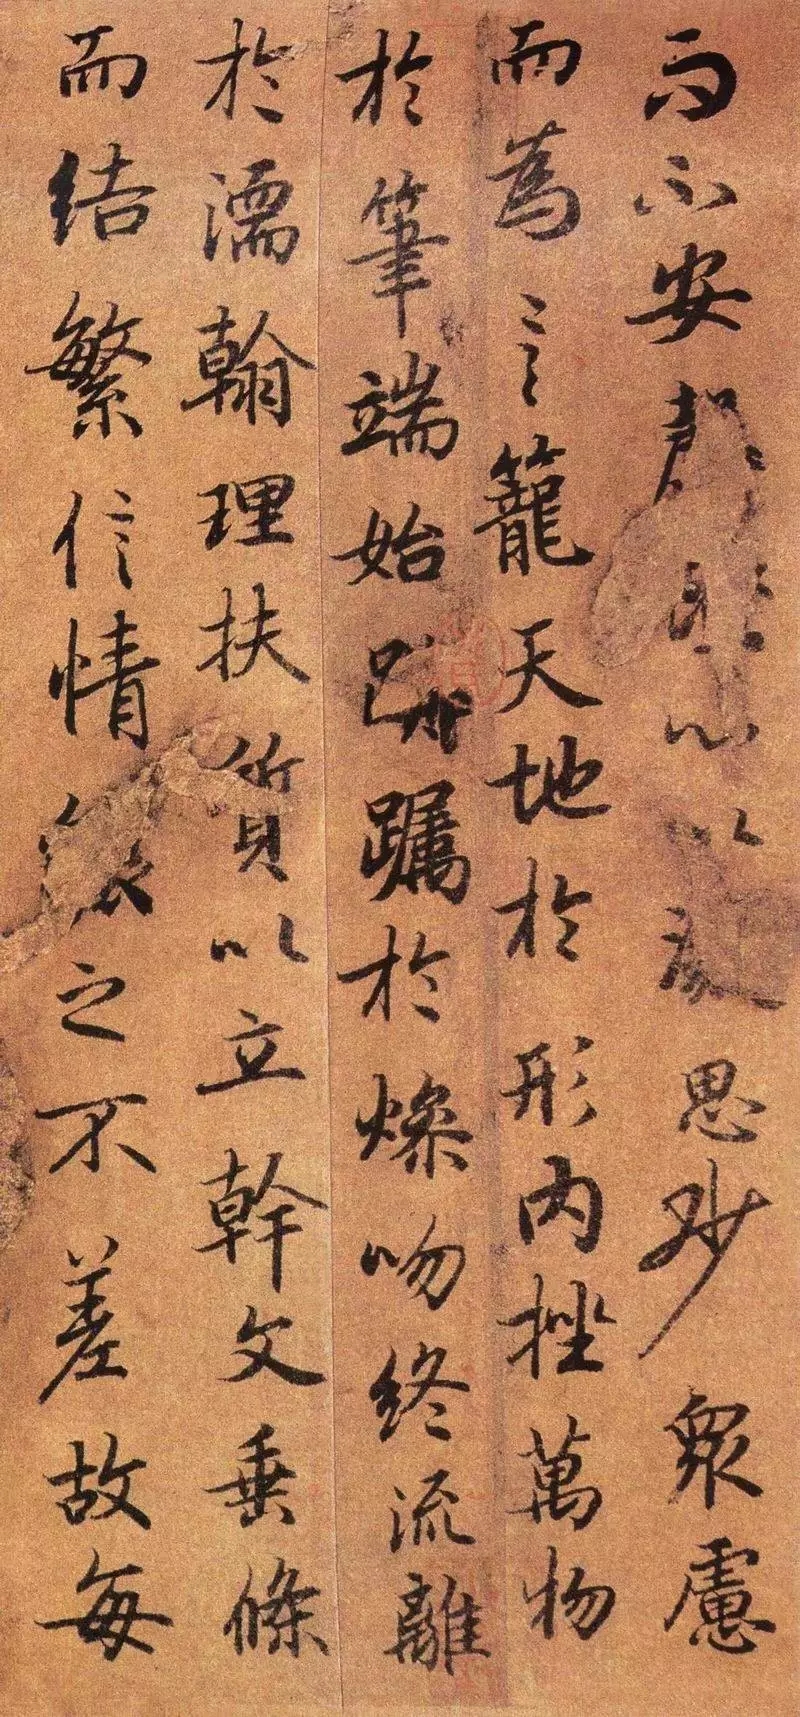 而不安心以思眇衆慮
而為言籠天地於形內挫萬物
於筆端始躑躅於燥吻終流離
於濡翰理扶質以立幹文垂條
而結繁信情之不差故每